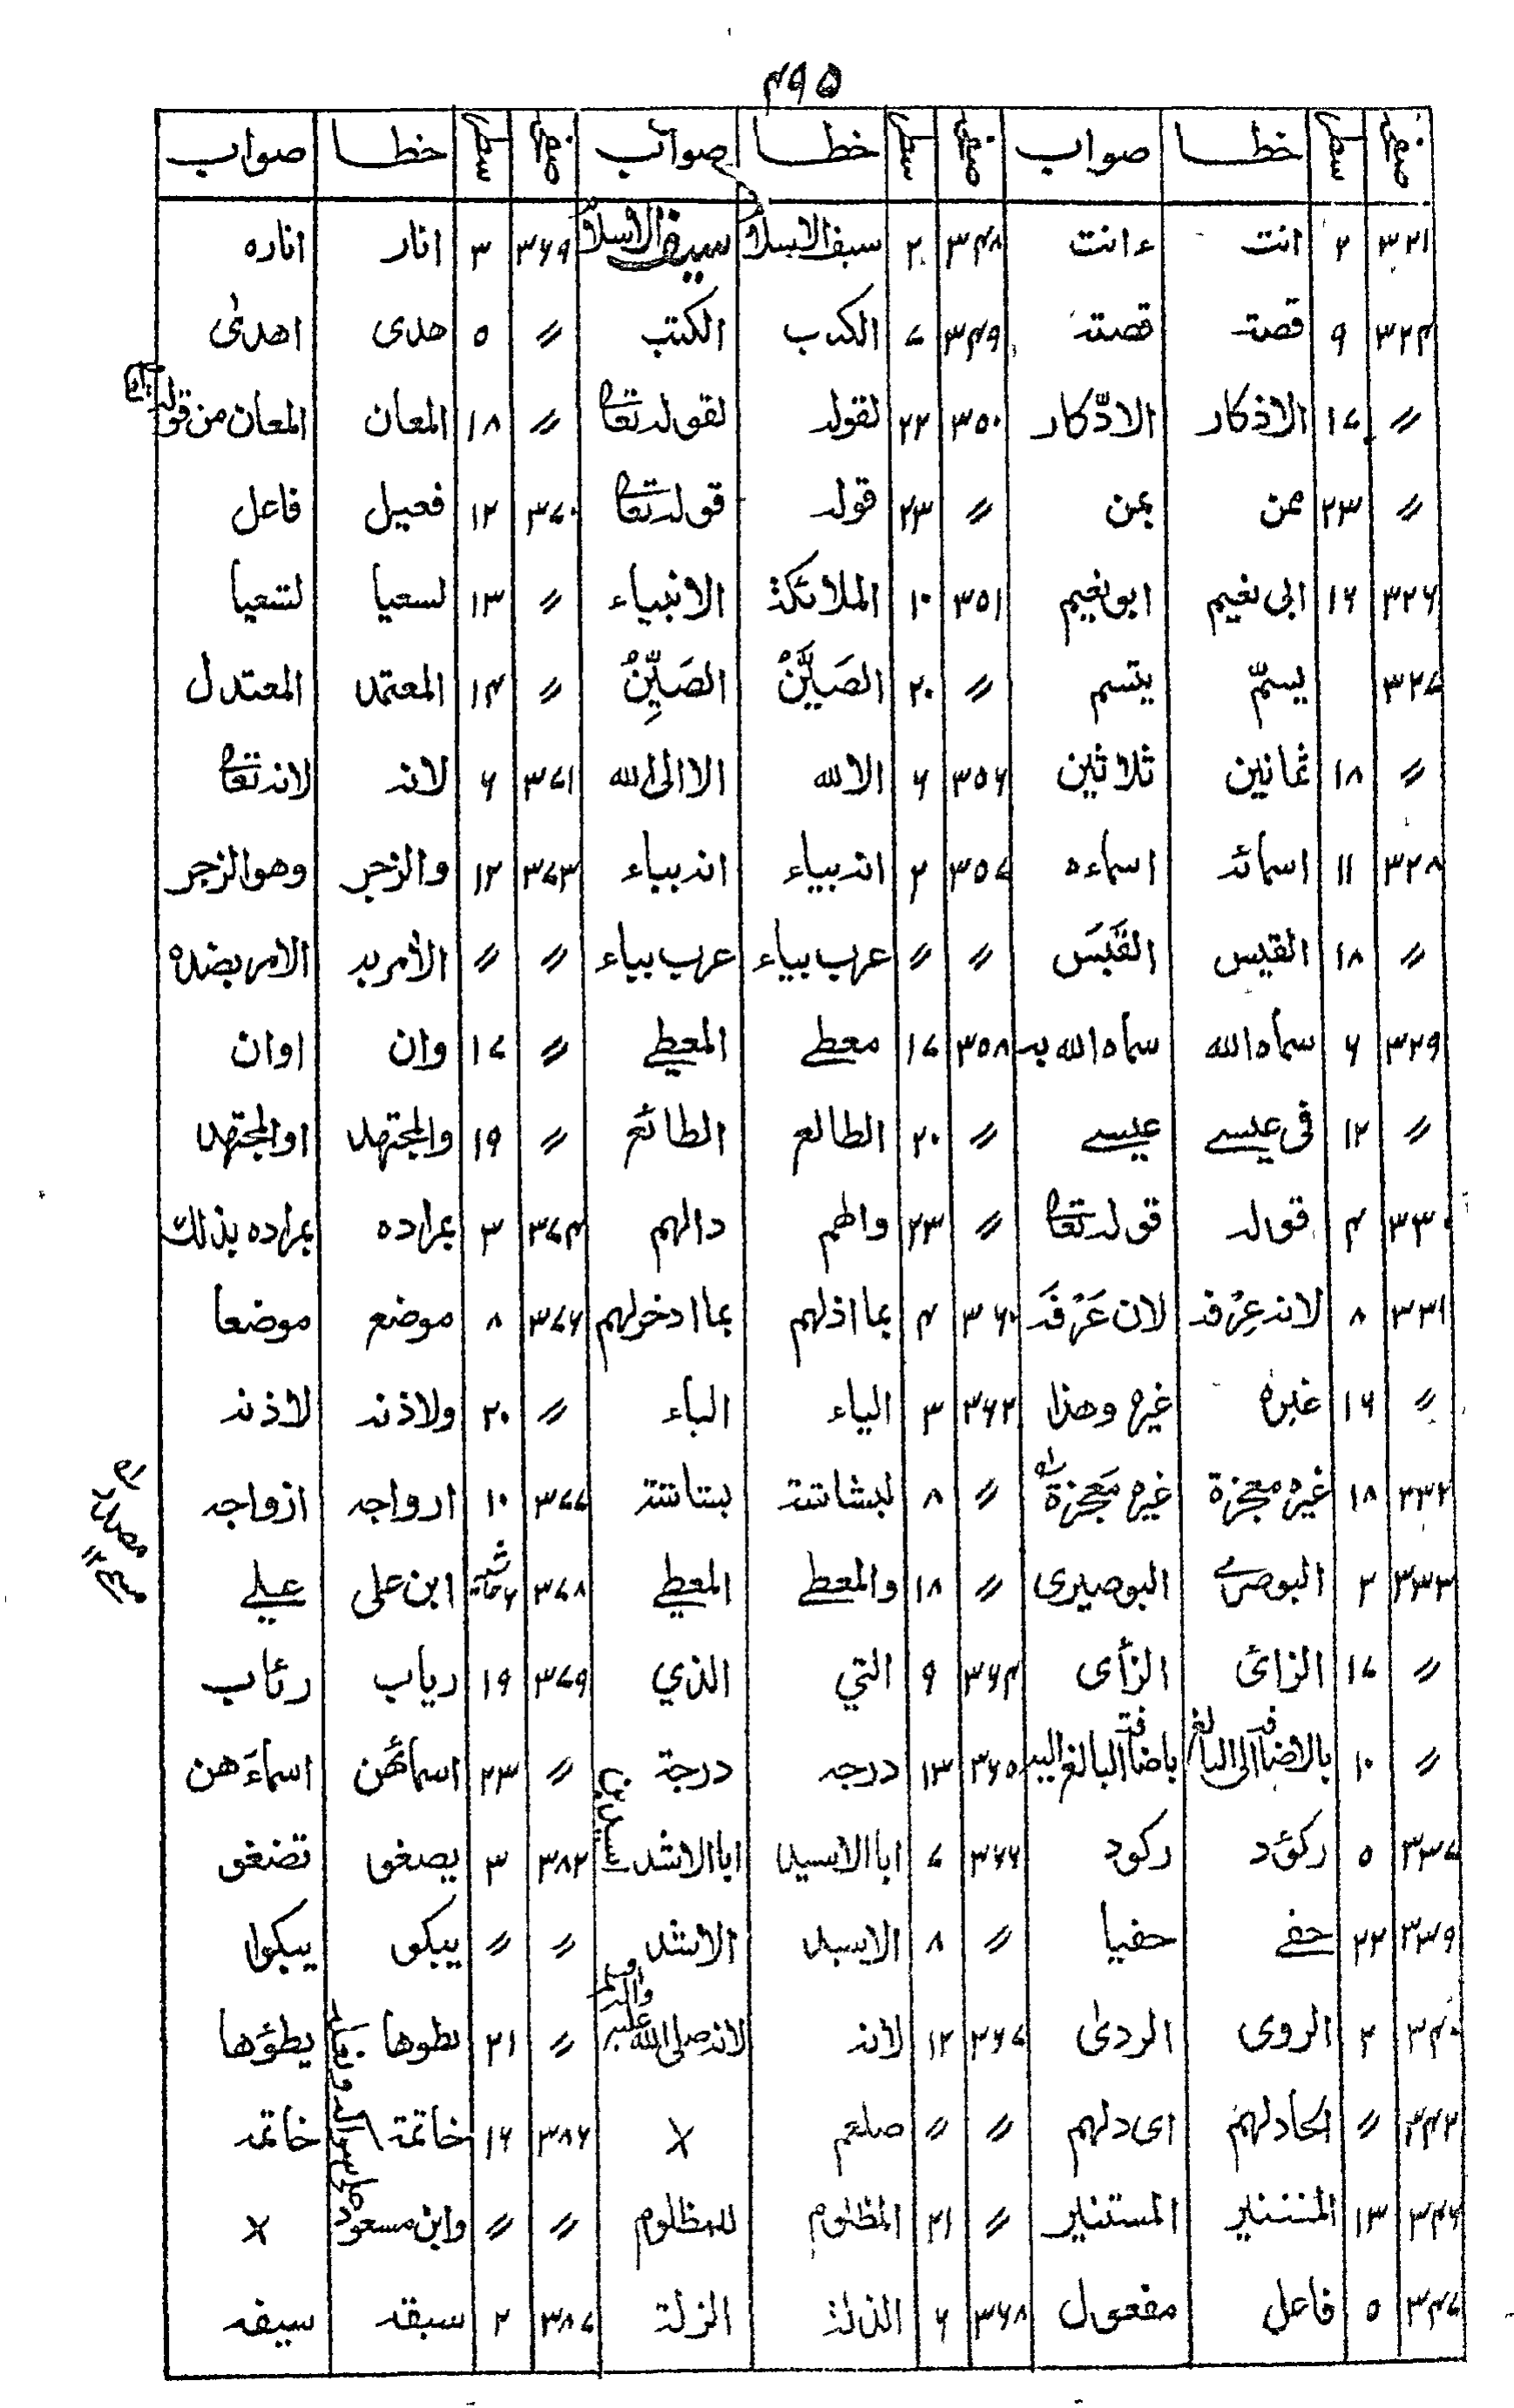 ۴۹۵
صفحہ سطر خطا صواب صفحہ سطر خطا صواب صفحہ سطر خطا صواب
۳۲۱ ۲ انت ءانت ۳۴۸ ۲ سبف الاسلام سیف الاسلام ۳۶۹ ۳ انار انارہ
۳۲۴ ۹ قصۃ قصتہ ۳۴۹ ۷ الکدب الکتب 〃 ۵ ھدی اھدیٰ
〃 ۱۷ الاذکار الادّکار ۳۵۰ ۲۲ لقولہ لقولہ تعالی 〃 ۱۸ المعان المعان من قولہ
〃 ۲۳ ممن بمن 〃 ۲۳ قولہ قولہ تعالی ۳۷۰ ۱۲ فعیل فاعل
۳۲۶ ۱۶ ابی نعیم ابو نعیم ۳۵۱ ۱۰ الملائکۃ الانبیاء 〃 ۱۳ لسعیا لشعیا
۳۲۷ یسمّ یتسم 〃 ۲۰ الصَیَّنُ الصَیِّنُ 〃 ۱۴ المعتمد المعتدل
〃 ۱۸ ثمانین ثلاثین ۳۵۶ ۶ الا للہ الا الی اللہ ۳۷۱ ۶ لانہ لانہ تعالی
۳۲۸ ۱۱ اسمائہ اسماءہ ۳۵۷ ۲ انہ بیاء انہ بباء ۳۷۳ ۱۲ والزجر وھو الزجر
〃 ۱۸ القیس القَبَسَ 〃 〃 عرب بیاء عرب بباء 〃 〃 الأمر بہ الامر بضدہ
۳۲۹ ۶ سماہ اللہ سماہ اللہ بہ ۳۵۸ ۱۷ معطے المعطے 〃 ۱۷ وان اوان
〃 ۱۲ فی عیسے عیسے 〃 ۲۰ الطالع الطائع 〃 ۱۹ والمجتھد او المجتھد
۳۳۰ ۴ قولہ قولہ تعالی 〃 ۲۳ والھم دالھم ۳۷۴ ۳ بمرادہ بمرادہ بذلک
۳۳۱ ۸ لانہ عرفہ لان عَرْفَہ ۳۶۰ ۴ بما اذلھم بما ادخولھم ۳۷۶ ۸ موضع موضعا
〃 ۱۶ غیرہ غیرہ وھذا ۳۶۲ ۳ الیاء الباء 〃 ۲۰ ولاذنہ لاذنہ
۳۳۲ ۱۸ غیرہ معجزة غیرہ مَعجزة 〃 ۸ لبشاشتہ بشاشتہ ۳۷۷ ۱۰ ارواجہ ازواجہ
۳۳۳ ۲ البوصرے البوصیری 〃 ۱۸ والمعط المعطے ۳۷۸ ابن علی علے
〃 ۱۷ الزائ الزأی ۳۶۴ ۹ التی الذی ۳۷۹ ۱۹ ریاب رئاب
〃 ۱۰ بالاضافۃ الی البالغ باضافۃ البالغ الیہ ۳۶۵ ۱۳ درجہ درجۃ 〃 ۲۳ اسمائھن اسماءَھن
۳۳۷ ۵ رکوٴد رکود ۳۶۶ ۷ ابا الاسید ابا الاشد ۳۸۲ ۳ یصغی تضغی
۳۳۹ ۲۲ حفے حفیا 〃 ۸ الاسید الاشد 〃 〃 یبکی یبکوا
۳۴۰ ۲ الروی الردیٰ ۳۶۷ ۱۲ لانہ لانہ صلی اللہ علیہ والہ وسلم 〃 ۲۱ بطوھا یطؤھا
۳۴۲ 〃 الحادلھم ای دلھم 〃 〃 صلعم × ۳۸۶ ۱۶ خاتمۃ خاتمہ
۳۴۶ ۱۳ المننیر المستنیر 〃 ۲۱ المظلوم للمظلوم 〃 〃 وابن مسعود ×
۳۴۷ ۵ فاعل مفعول ۳۶۸ ۶ الذلۃ الزلۃ ۳۸۷ ۲ سبقہ سیفہ